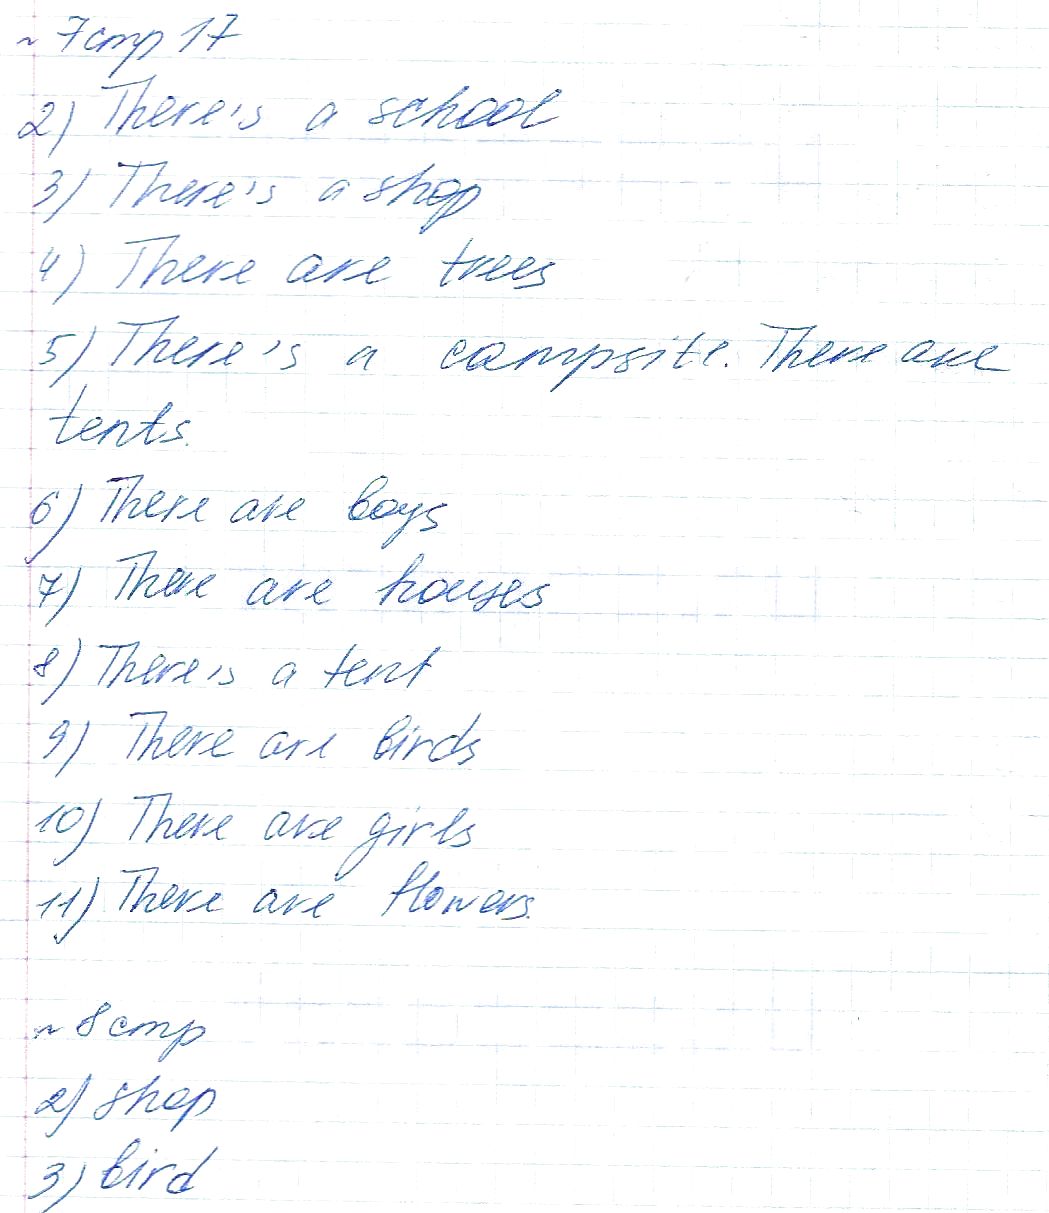 ~ 7 стр 17
2) There's a school
3) There's a shop
4) There are trees
5) There's a campsite. There are
tents.
6) There are boys
7) There are houses
8) There's a tent
9) There are birds
10) There are girls
11) There are flowers.
~ 8 стр
2) shop
3) bird